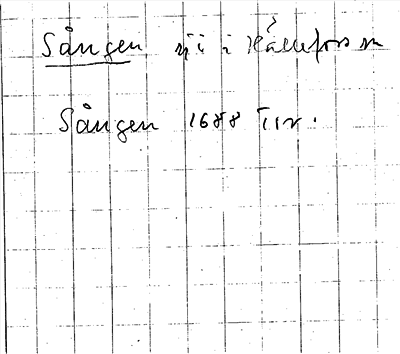 Sången sjö i Hällefors sn
Sången 1688 TIr.